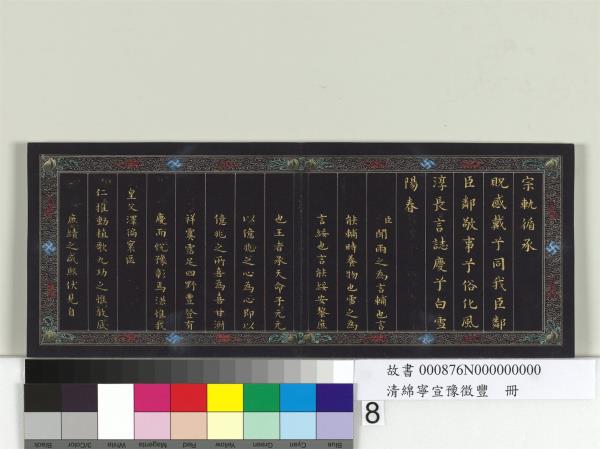 宗軌循承
貺感戴乎同我臣鄰
臣鄰敬事乎俗化風
淳長言誌慶乎白雪
陽春
臣聞雨之為言輔也言
能輔時養物也雪之為
言綏也言能綏安黎庶
也王者承天命子元元
以億兆之心為心即以
億兆之所喜為喜甘澍
祥霙霑足四野豐登有
慶而悅豫彰焉洪惟我
皇父澤徧寰區
仁推動植歌九功之惟敘底
庶績之咸熙伏見自
故書 000876N000000000
清綿寧宣豫徵豐 冊
8
Black
3/Color
White
Magenta
Red
Yellow
Green
Cyan
Blue